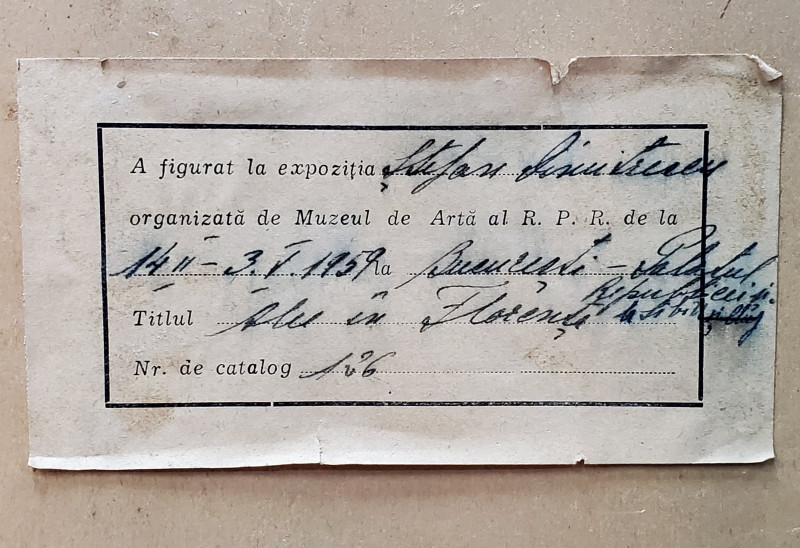 A figurat la expoziția Ștefan Dimitrescu
organizată de Muzeul de Artă al R. P. R. de la
14 II – 3. V. 1959 la București – Palatul
Republicii și
la Sibiu și Cluj
Titlul Alee în Florența
Nr. de catalog 126